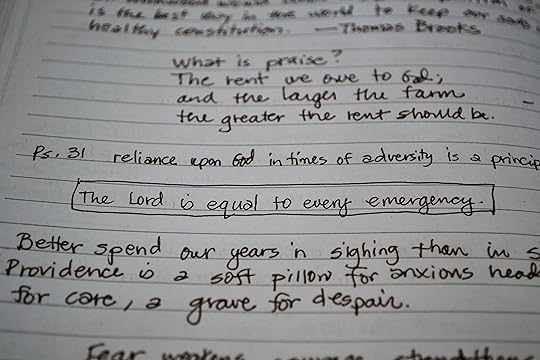 is the best day in the world to keep our souls in
healthy constitution. — Thomas Brooks
What is praise?
The rent we owe to God;
and the larger the farm
the greater the rent should be.
Ps. 31 reliance upon God in times of adversity is a
The Lord is equal to every emergency.
Better spend our years 'n sighing than in
Providence is a soft pillow for anxions
for care, a grave for despair.
Fear